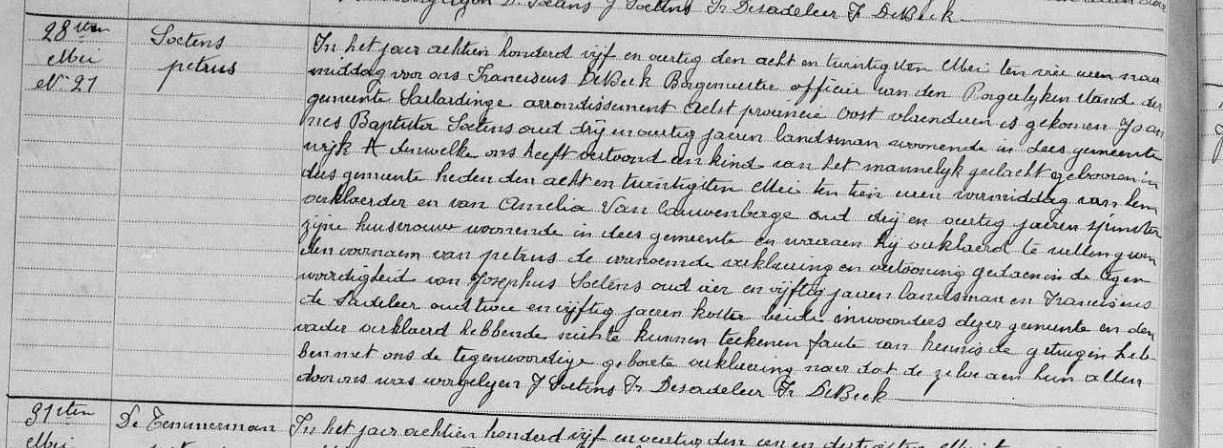 J Soetens Fr Desadeleer Fr DeBeck
28sten
Mei
N° 27
Soetens
petrus
In het jaer achtien honderd vijf en veertig den acht en twintigsten Mei ten vier uren naer
middag voor ons Franciscus DeBeck Borgemeester officier van den Borgerlyken stand der
gemeente Sarlardinge arrondissement Aelst provincie Oost vlaenderen is gekomen Joan
nes Baptista Soetens oud dry en veertig jaeren landsman woonende in dees gemeente
wyk A denwelke ons heeft vertoond een kind van het mannelyk geslacht gebooren in
dees gemeente heden den acht en twintigsten Mei ten tien uren voormiddag van hem
verklaerder en van Amelia Van Cauwenberge oud dry en veertig jaeren spinster
zyne huisvrouw woonende in dees gemeente en waeraen hy verklaerd te willen geven
den voornaem van petrus de genoemde verklaering en vertooning gedaen in de tegen
woordigheid van Josephus Soetens oud vier en vyftig jaeren landsman en Franciscus
de Sadeleer oud twee en vyftig jaeren koster beide inwoonders dezer gemeente en den
vader verklaerd hebbende niette kunnen teekenen faute van kennis de getuigen heb
ben met ons de tegenwoordige geboorte verklaering naer dat de zelve aen hun allen
door ons was voorgelezen J Soetens Fr Desadeleer Fr DeBeck
31sten
Mei
De Temmerman
In het jaer achtien honderd vijf en veertig den een en dertigsten Mei